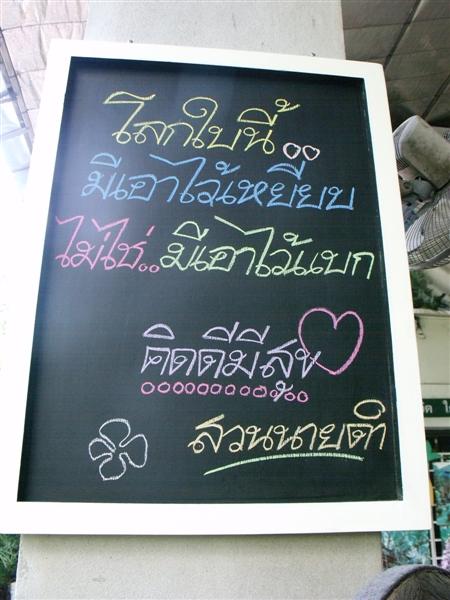 โลกใบนี้..
มีเอาไว้เหยียบ
ไม่ใช่..มีเอาไว้แบก
คิดดีมีสุข
สวนนายดำ